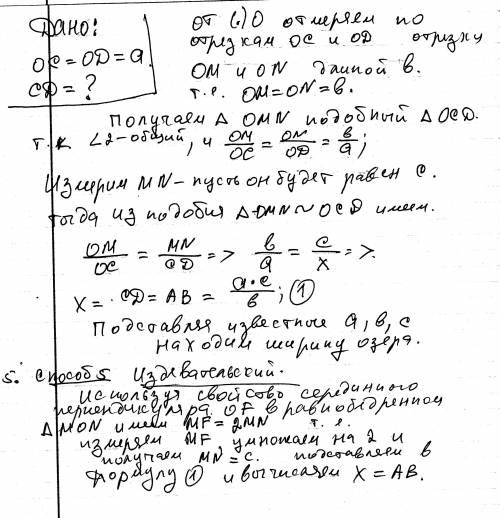 Дано:
OC = OD = a.
CD = ?
от (.) O отмеряем по
отрезкам OC и OD отрезки
OM и ON длиной b.
т.е. OM = ON = b.
Получаем ΔOMN подобный ΔOCD.
т.к ∠2 - общий, и OM/OC = ON/OD = b/a;
Измерим MN - пусть он будет равен c.
тогда из подобия ΔOMN ~ OCD имеем.
OM/OC = MN/CD => b/a = c/x =>.
X = CD = AB = a·c/b; ①
Подставляя известные a, b, c
находим ширину озера.
5. Способ 5 Издевательский.
Используя свойство серединного
перпендикуляра OF в равнобедренном
ΔMON имеем MF = 2MN т.е.
измеряем MF умножаем на 2 и
получаем MN = c. подставляем в
формулу ① и вычисляем X = AB.